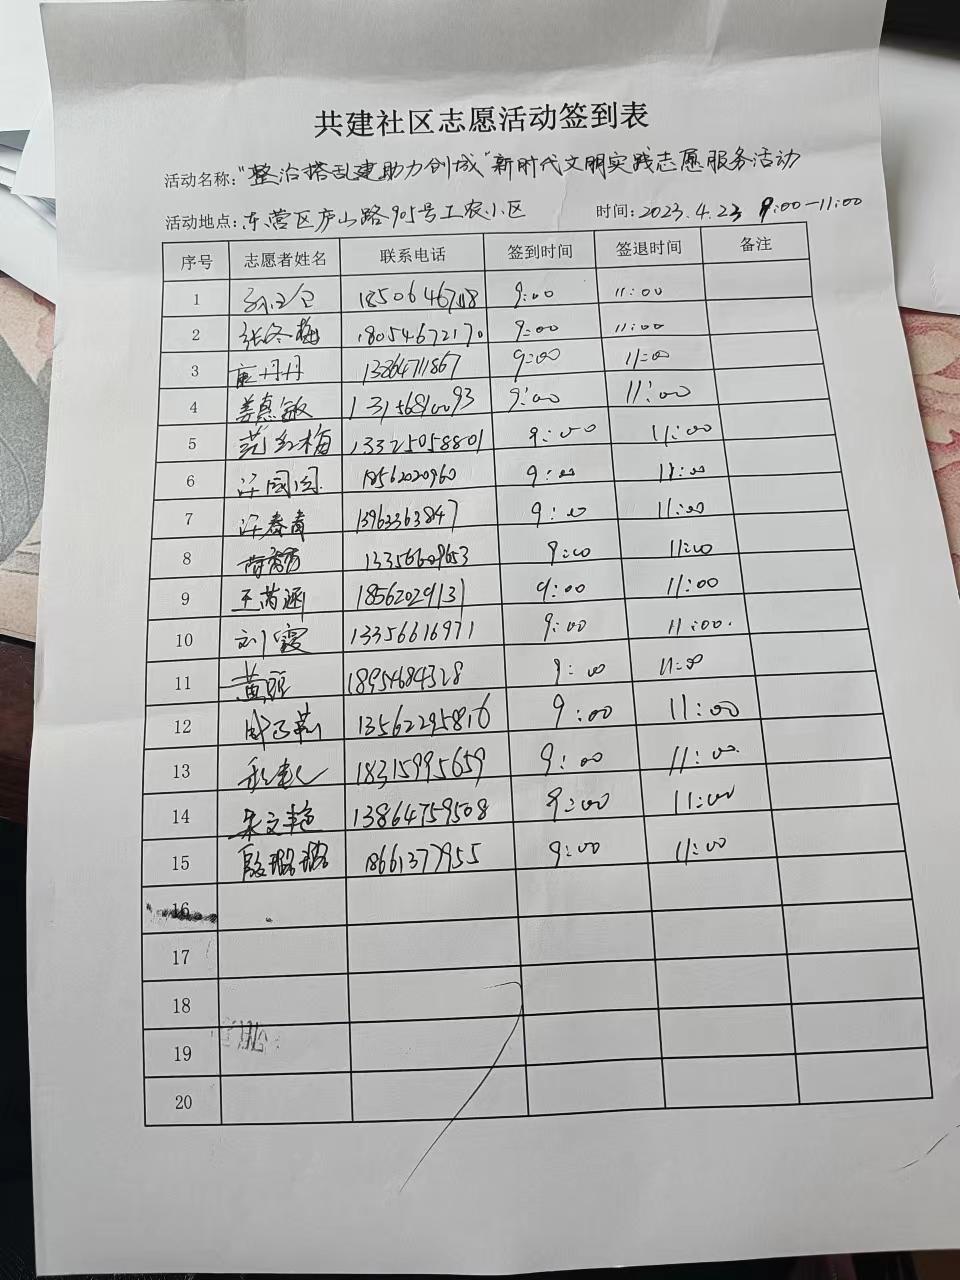 共建社区志愿活动签到表
活动名称:"整治搭乱建助力创城"新时代文明实践志愿服务活动
活动地点:东营区庐山路905号工农小区 时间:2023.4.23 9:00-11:00
序号 志愿者姓名 联系电话 签到时间 签退时间 备注
1 9:00 11:00
2 张冬梅 18054672170 9:00 11:00
3 唐丹丹 13864711867 9:00 11:00
4 姜惠敏 13156810093 9:00 11:00
5 范红梅 13325058801 9:00 11:00
6 许园园 18562020960 9:00 11:00
7 许春青 13963363847 9:00 11:00
8 13356609653 9:00 11:00
9 王芮涵 18562029131 9:00 11:00
10 刘霞 13356616971 9:00 11:00.
11 黄 18954684328 9:00 11:00
12 13562295816 9:00 11:00
13 18315995659 9:00 11:00.
14 宋文艳 13864759508 9:00 11:00
15 殷璐璐 18661377955 9:00 11:00
16
17
18
19
20